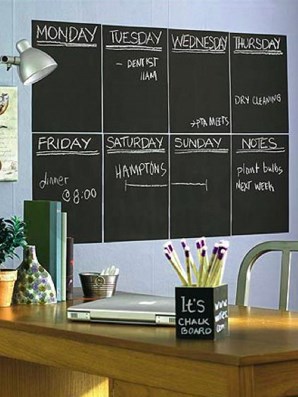 MONDAY
TUESDAY
- DENTIST
11AM
WEDNESDAY
→PTA MEETS
THURSDAY
DRY CLEANING
FRIDAY
dinner
@ 8:00
SATURDAY
HAMPTONS
SUNDAY
NOTES
plant bulbs
NEXT WEEK
It's
CHALK
BOARD